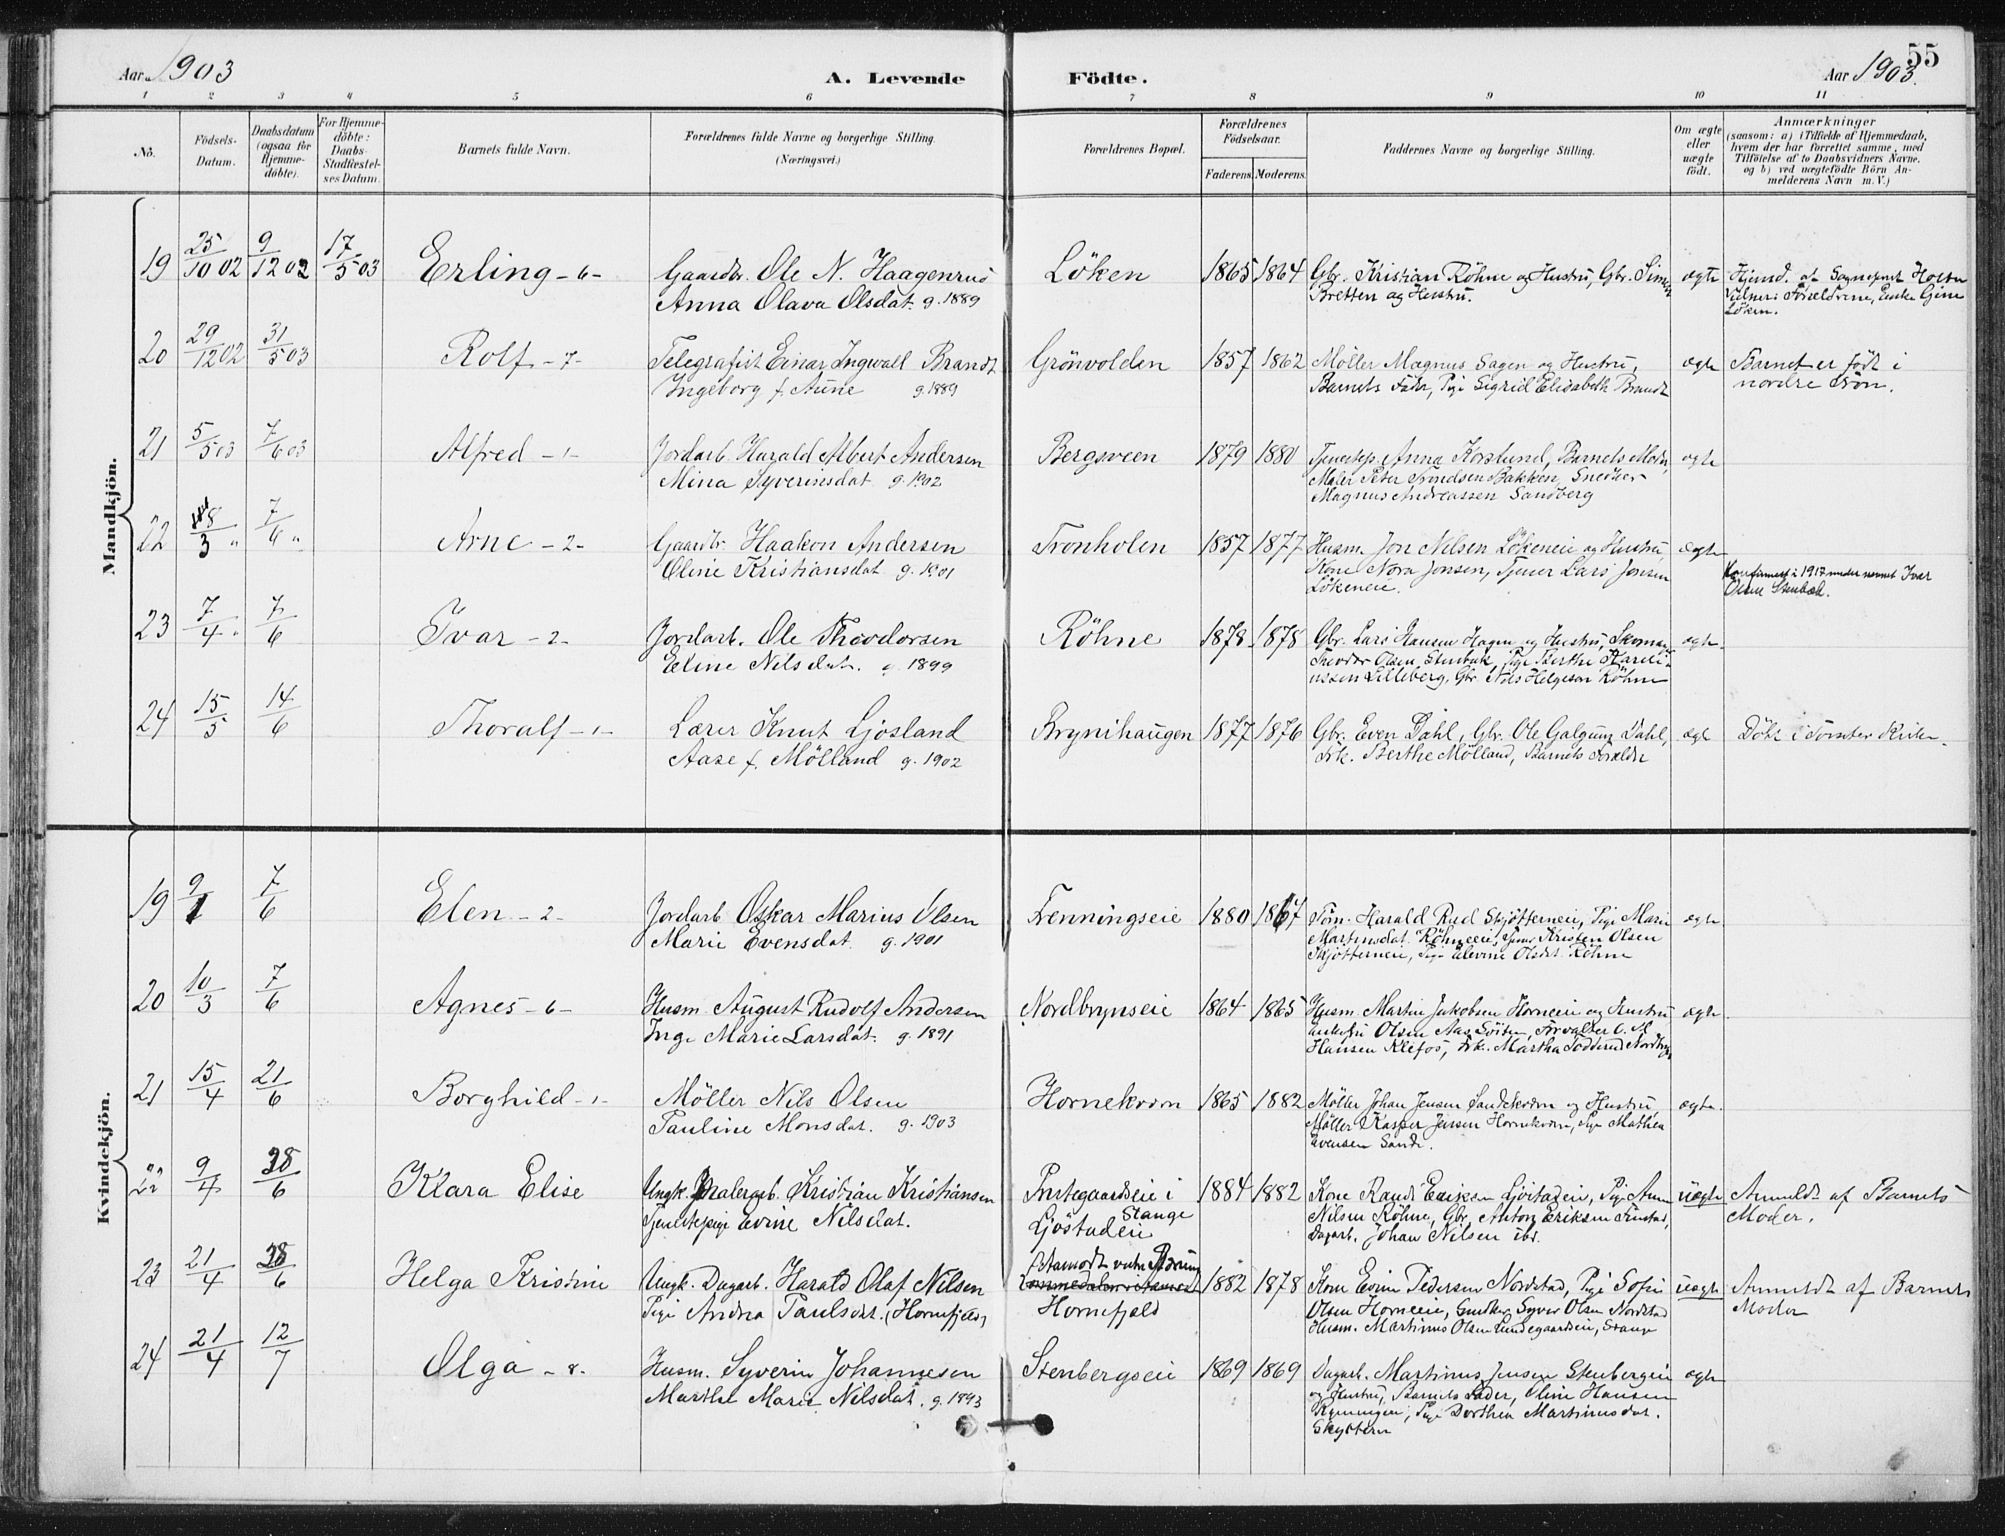 Aar 1903
A. Levende
Födte.
Aar 1903.
55
1 2 3 4 5 6 7 8 9 10 11
No.
Födsels-
Datum.
Daabsdatum
(ogsaa for
Hjemme-
döbte).
For Hjemme-
döbte:
Daabs-
Stadfæstel-
ses Datum.
Barnets fulde Navn.
Forældrenes fulde Navne og borgerlige Stilling.
(Næringsvei.)
Forældrenes Bopæl.
Forældrenes
Födselsaar.
Faderens.
Moderens.
Faddernes Navne og borgerlige Stilling.
Om ægte
eller
uægte
födt.
Anmærkninger
(saasom: a) i Tilfælde af Hjemmedaab,
hvem der har forrettet samme, med
Tilföielse af to Daabsvidners Navne.
og b) ved uægtefödte Börn An-
melderens Navn m. V.)
Mandkjön.
19 25/10 02 9/12 02 17/5 03 Erling - 6 - Gaardbr. Ole N. Haagenrud Löken 1865 1864 Gbr. Kristian Röhne og Hustru, Gbr. Simen ægte Hjemd. af Sognepræst Holtn
Anna Olava Olsdat. g. 1889 Bretten og Hustru. Vidner: Forældrene, Enke Gine
Löken.
20 29/12 02 31/5 03 Rolf - 7 - Telegrafist Einar Ingwall Brandt Grönvolden 1857 1862 Møller Magnus Sagen og Hustru, ægte Barnet er födt i
Ingeborg f. Aune g. 1889 Barnets Fader, Pige Sigrid Elisabeth Brandt nordre Fron.
21 5/5 03 7/6 03 Alfred - 1 - Jordarb. Harald Albert Andersen Bergsveen 1879 1880 Tjenestep. Anna Korslund, Barnets Moder, ægte
Mina Syverinsdat g. 1902 Maler Peter Trondsen Bakken, Snedker
Magnus Andreassen Sandberg
22 8/3 " 7/6 " Arne - 2 - Gaardbr. Haakon Andersen Tronholen 1857 1877 Husm. Jon Nilsen Lökeneie og Hustru, ægte
Oline Kristiansdat g. 1901 Kone Nora Jonsen, Tjener Lars Jonsen
Lökeneie.
Konfirmert i 1917 under navnet Ivar
Olsen Stenbæk.
23 7/4 " 7/6 Ivar - 2 - Jordarb. Ole Theodorsen Röhne 1878 1878 Gbr. Lars Hansen Hagen og Hustru, Skomag. ægte.
Eline Nilsdat. g. 1899 Theodor Olsen Stenbæk, Pige Berthe Hareli-
ussen Lilleberg, Gbr. Nils Helgesen Röhne
24 15/5 14/6 Thoralf - 1 - Lærer Knut Ljosland Brynihaugen 1877 1876 Gbr. Even Dahl, Gbr. Ole Dahl, ægte Döbt i Tomter Kirke.
Aase f. Mölland g. 1902 Frk. Berthe Mölland, Barnets Forældre
Kvindekjön.
19 9/1 7/6 Elen - 2 - Jordarb Oskar Marius Olsen Frenningseie 1880 1867 Töm. Harald Rud Skjötterneie, Pige Marie ægte
Marie Evensdat. g. 1901 Martinsdat. Röhneeie, Kristen Olsen
Skjötterneie, Pige Elevine Olsdat. Röhne
20 10/3 7/6 Agnes - 6 - Husm August Rudolf Andersen Nordbrynseie 1864 1865 Husm. Martin Jakobsen Horneeie og Hustru ægte
Inge Marie Larsdat. g. 1891 Olsen Aas Söiten, Forvalter O. M.
Hansen Klefos, Frk. Martha Nordbryn
21 15/4 21/6 Borghild - 1 - Möller Nils Olsen Hornekværn 1865 1882 Möller Johan Jensen Sandekværn og Hustru, ægte.
Pauline Monsdat. g. 1903 Möller Kasper Jensen Hornekværn, Pige Mathea
Evensen Sande.
22 9/4 28/6 Klara Elise Ungk. Malerarb. Kristian Kristiansen Prestegaardseie i 1884 1882 Kone Randi Eriksen Ljöstadeie, Pige Anna uægte Anmeldt af Barnets
Tjenestepige Evine Nilsdat. Stange
Ljöstadeie Nilsen Röhne, Gbr. Anton Eriksen Finstad, Moder.
Dagarb. Johan Nilsen ibd.
23 21/4 28/6 Helga Kristine Ungk. Dagarb. Harald Olaf Nilsen 1882 1878 Kone Evine Pedersen Nordstad, Pige Sofie uægte Anmeldt af Barnets
Pige Andrea Paulsdat. (Hornefjeld) Hornefjeld Olsen Horneeie, Syver Olsen Nordstad Moder
Husm. Martinus Olsen Lundegaardseie, Stange
24 21/4 12/7 Olga - 8 - Husm. Syverin Johannesen Stenbergseie 1869 1869 Dagarb. Martinus Jensen Stenbergeie ægte
Marthe Marie Nilsdat. g. 1893 og Hustru, Barnets Fader, Oline Hansen
Pige Dorthea Martinusdat.